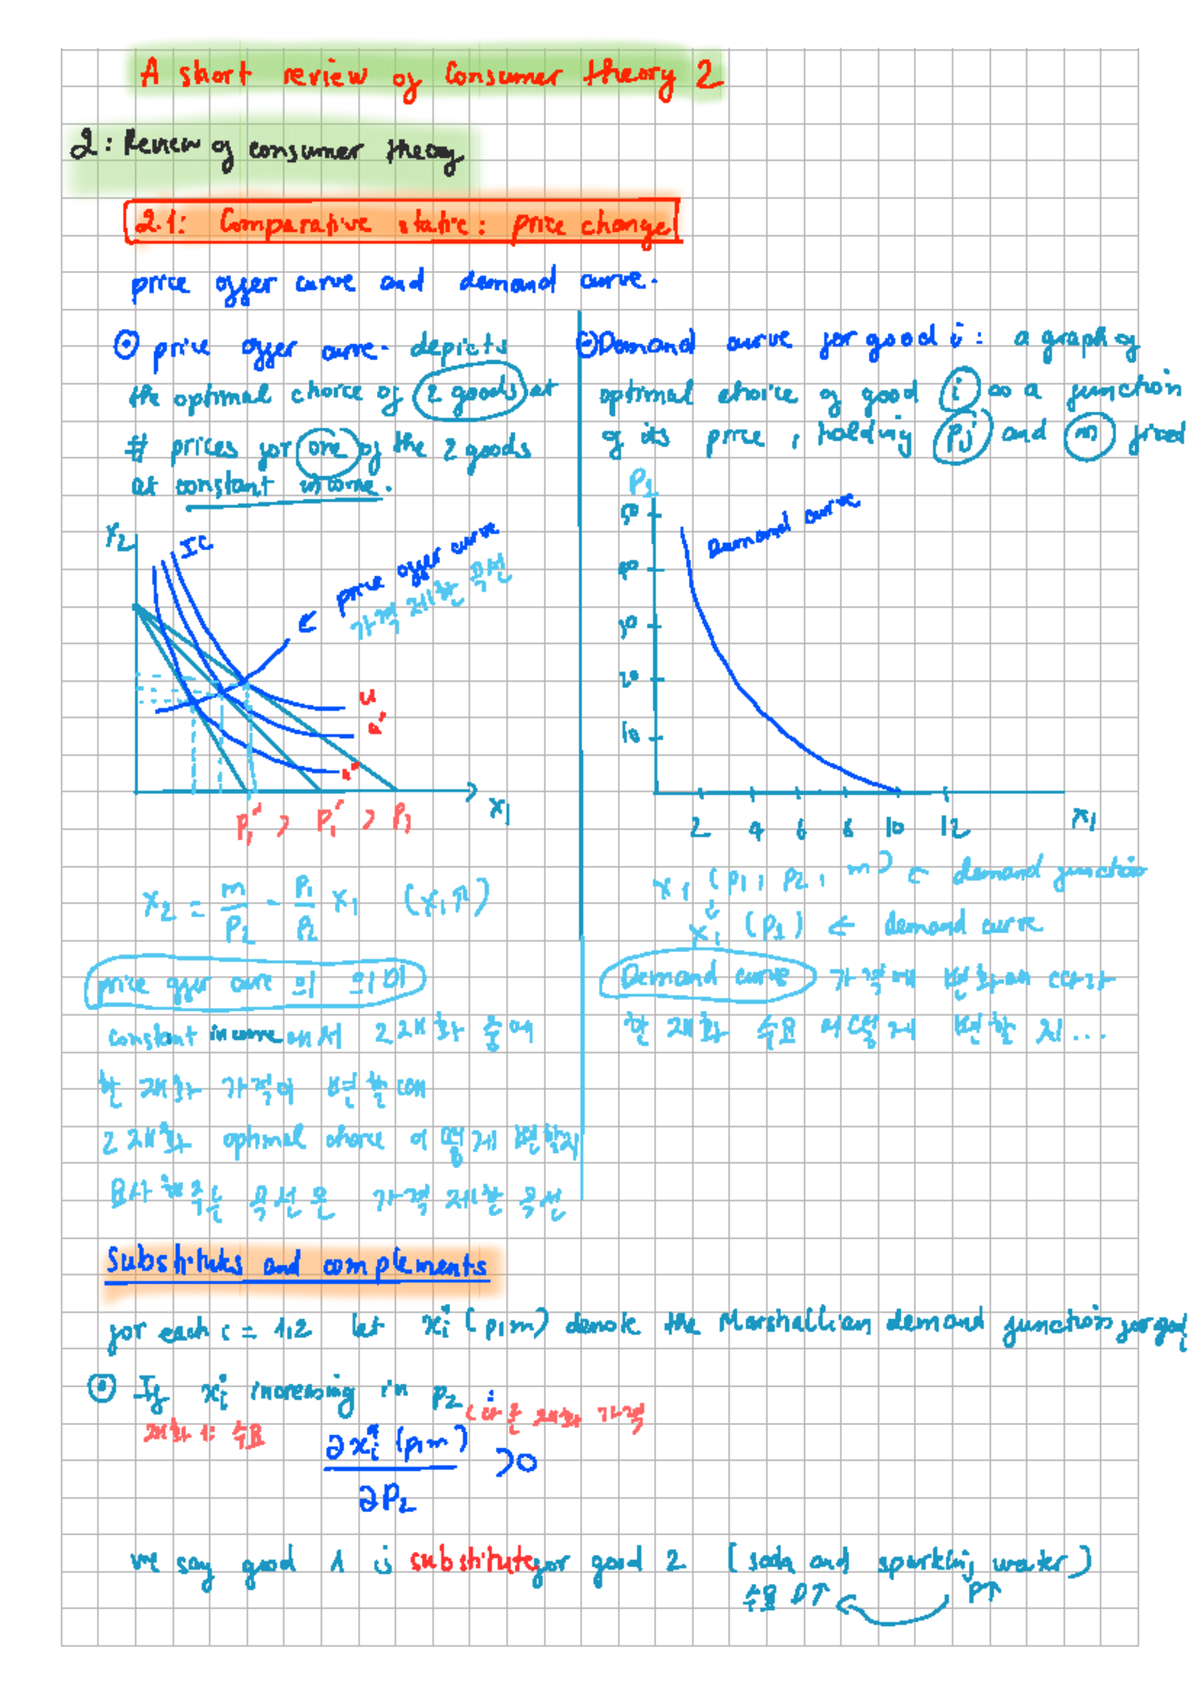 A short review of Consumer theory 2
2: Review of consumer theory
2.1: Comparative static: price change
price offer curve and demand curve.
price offer curve. depicts
the optimal choice of 2 goods at
# prices for one of the 2 goods
at constant income.
x2
IC
price offer curve
가격 제한 곡선
u
u'
u"
x1
P1" > P1' > P1
x2 = m/P2 - P1/P2 x1
price offer curve 의 의미
constant income 에서 2 재화 중에
한 재화 가격이 변할때
2 재화 optimal choice 어떻게 변할지
묘사해주는 곡선은 가격 제한 곡선
Demand curve for good i: a graph of
optimal choice of good i as a function
of its price, holding pj and m fixed
P1
50
40
30
20
10
Demand curve
2 4 6 8 10 12
x1
x1 (p1, p2, m) ← demand function
x1 (p1) ← demand curve
Demand curve 가격에 변화에 따라
한 재화 수요 어떻게 변할지...
Substitutes and complements
for each i = 1,2 let xi* (p,m) denote the Marshallian demand function for good i
If xi* increasing in p2 :
재화 1: 수요
(다른 재화 가격
∂xi* (p,m) / ∂P2 >0
we say good 1 is substitute for good 2 (soda and sparkling water)
수요 D↑
P↑